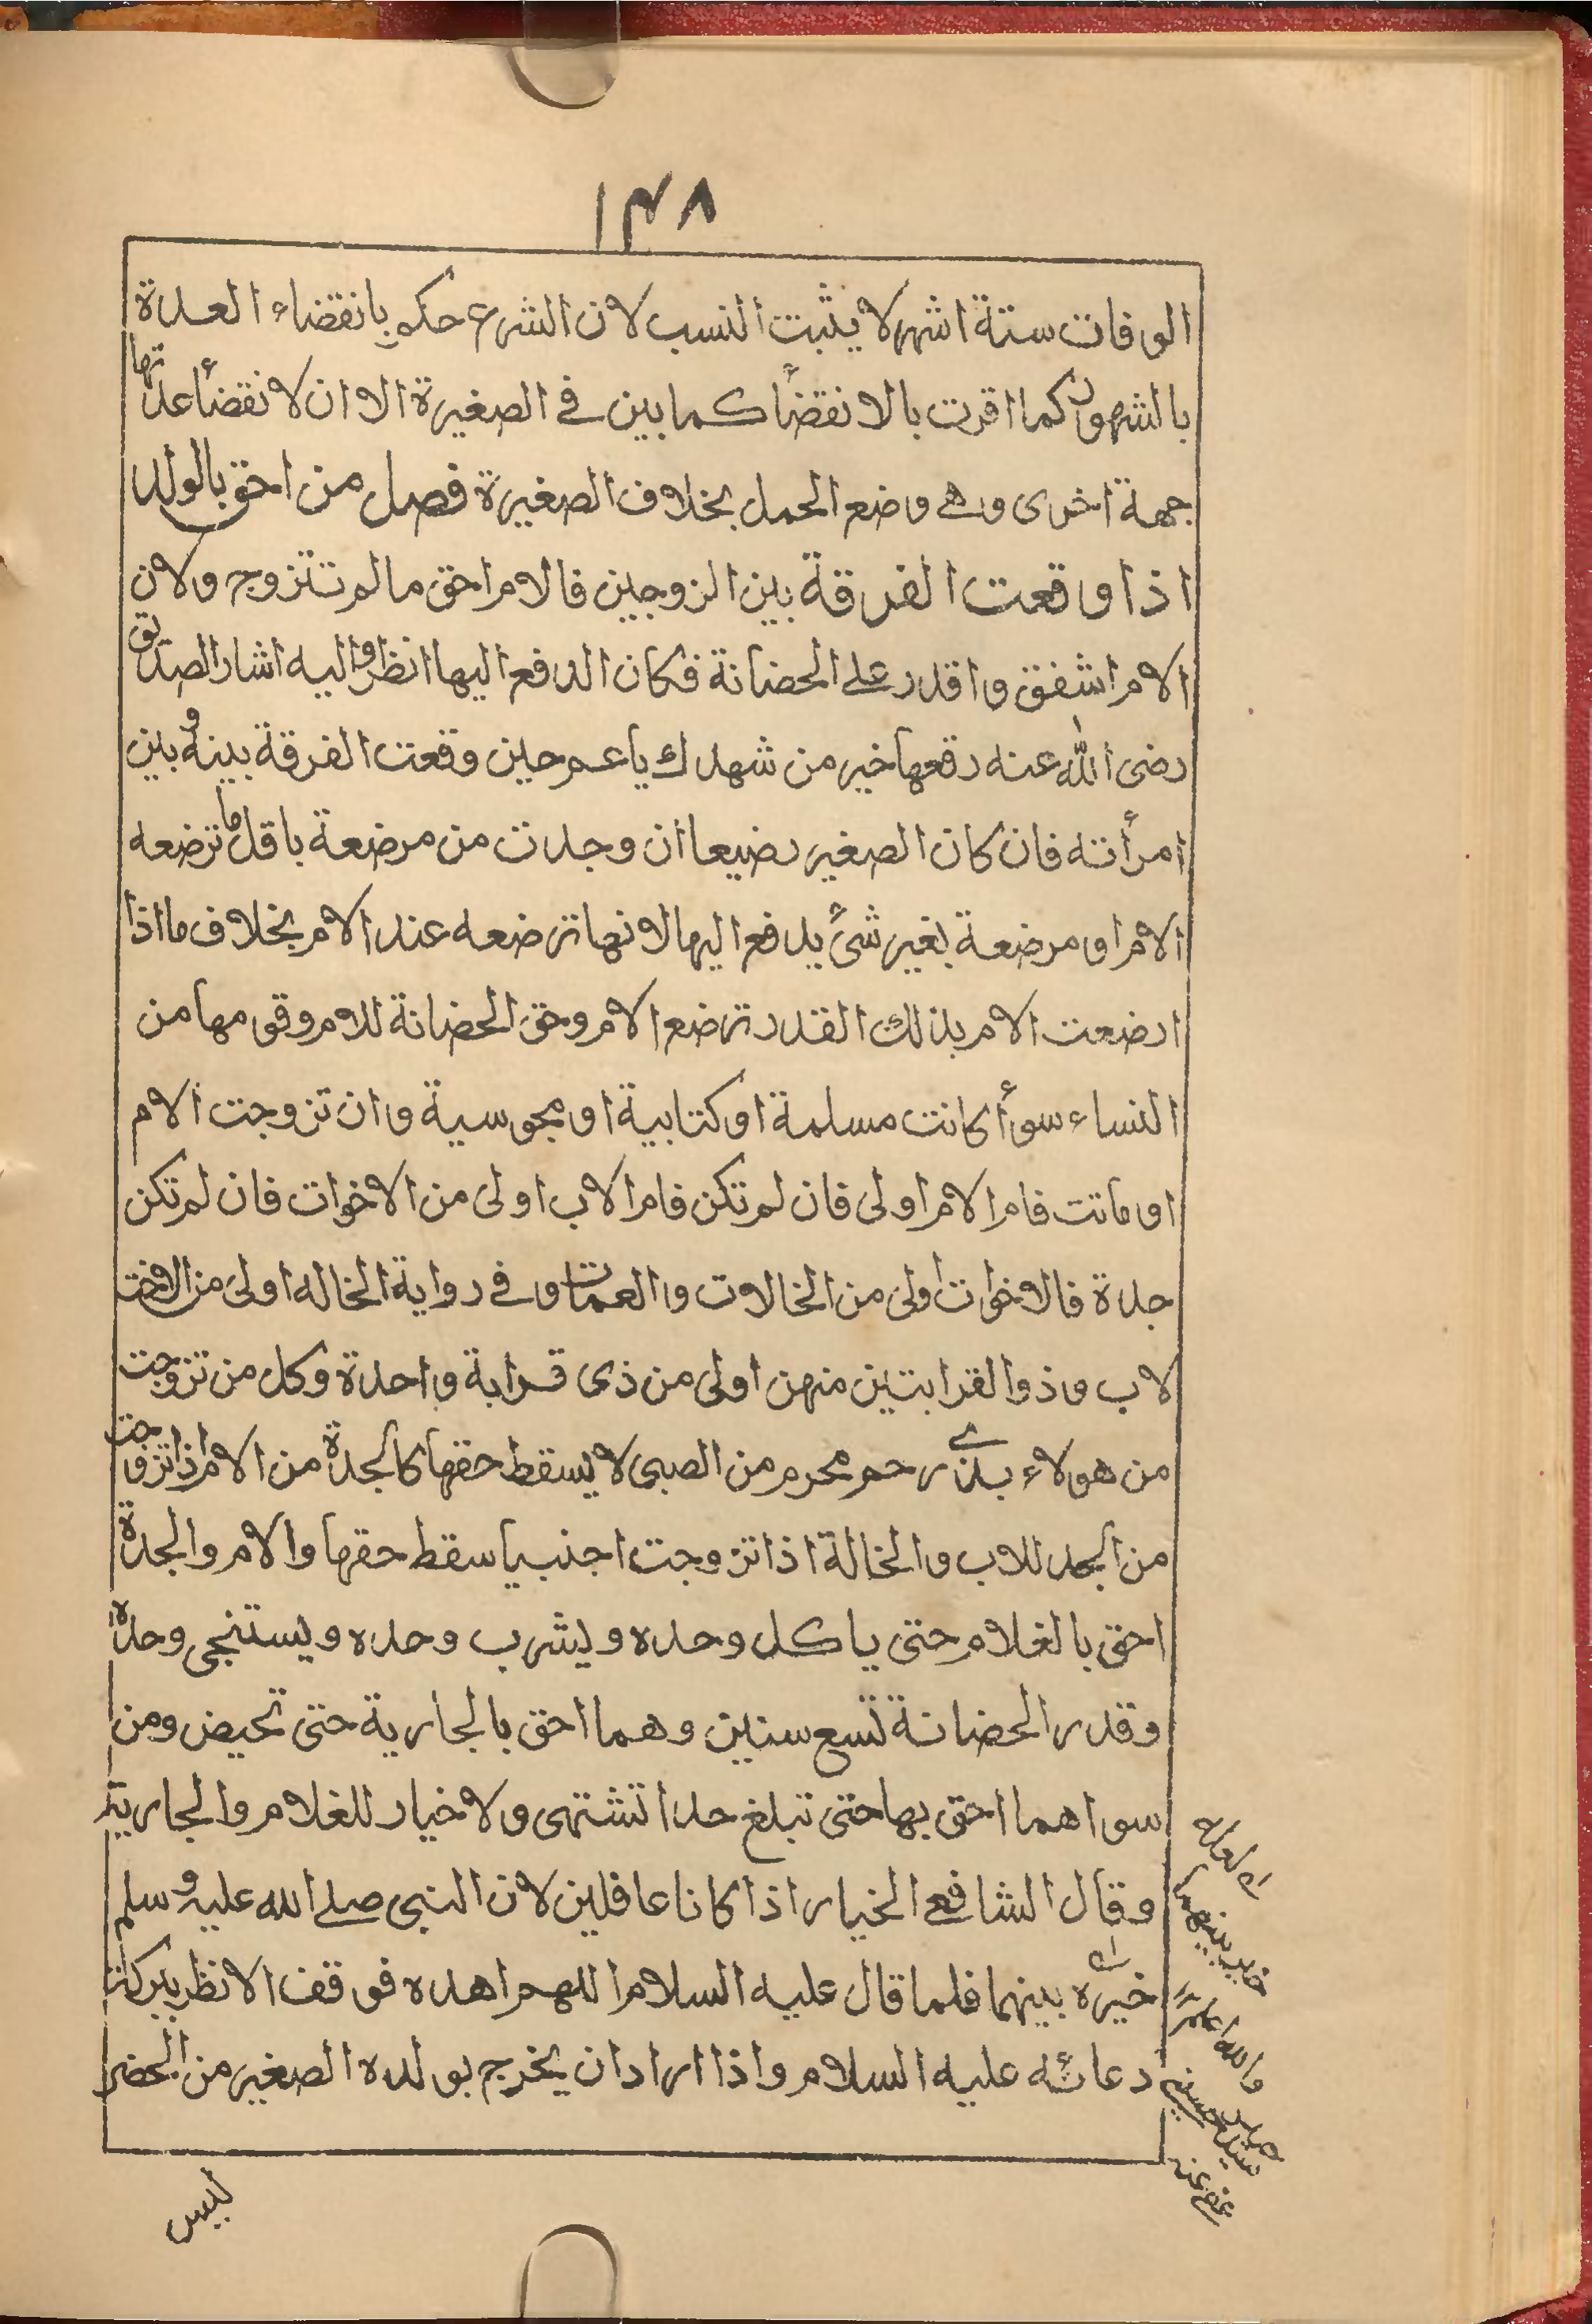 ١٣٨
الوفات ستة اشهر لا يثبت النسب لان الشرع حكم بانقضاء العدة
بالشهور كما اقرت بالانقضأ كما بين في الصغيرة الا ان لانقضأ عدتها
جهة اخرى وهي وضع الحمل بخلاف الصغيرة فصل من احق بالولد
اذا وقعت الفرقة بين الزوجين فالام احق مالم تتزوج ولان
الام اشفق واقدر على الحضانة فكان الدفع اليها انظر واليه اشار الصديق
رضى الله عنه رقعها خير من شهدك يا عمر حين وقعت الفرقة بينه وبين
امرأته فان كان الصغير رضيعا ان وجدت من مرضعة باقل ما ترضعه
الام او مرضعة بغير شئ يدفع اليها لانها ترضعه عند الام بخلاف ما اذا
ارضعت الام بذلك القدر ترضع الام وحق الحضانة للام وقومها من
النساء سوأ كانت مسلمة او كتابية او مجوسية وان تزوجت الام
او ماتت فام الام اولى فان لم تكن فام الاب اولى من الاخوات فان لم تكن
جدة فالاخوات اولى من الخالات والعمات وفي رواية الخاله اولى من الاخت
لاب وذوا القرابتين منهن اولى من ذى قرابة واحدة وكل من تزوجت
من هولاء بذي رحم محرم من الصبى لا يسقط حقها كالجدة من الام اذا تزوجت
من الجد للاب والخالة اذا تزوجت اجنبيا سقط حقها والام والجدة
احق بالغلام حتى ياكل وحده ويشرب وحده ويستنجى وحده
وقدر الحضانة تسع سنين وهما احق بالجارية حتى تحيض ومن
سواهما احق بها حتى تبلغ حدا تشتهى ولا خيار للغلام والجارية
وقال الشافعي الخيار اذا كانا عاقلين لان النبى صلے الله عليه وسلم
خيره بينهما فلما قال عليه السلام اللهم اهده فوقف الانظر ببركة
دعائه عليه السلام واذا اراد ان يخرج بولده الصغير من الحضر
خير بينهما
والله اعلم
عفي عنه
ليس